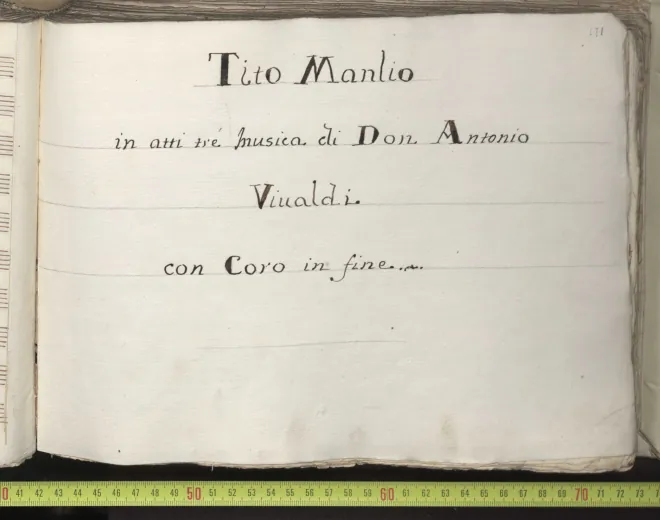 Tito Manlio
in atti tré musica di Don Antonio
Viualdi.
con Coro in fine....
0 41 42 43 44 45 46 47 48 49 50 51 52 53 54 55 56 57 58 59 60 61 62 63 64 65 66 67 68 69 70 71 72 73 7